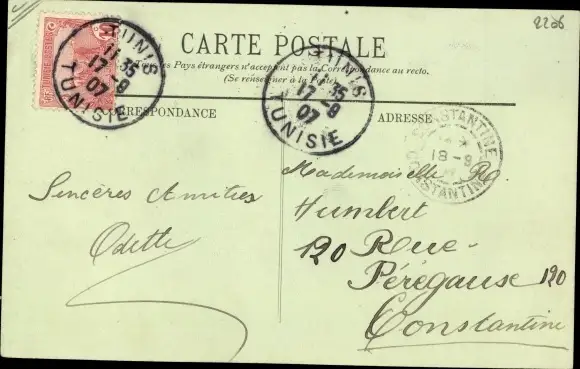 2206
CARTE POSTALE
Pays étrangers n'acceptent pas la Correspondance au recto.
(Se renseigner à la Poste)
TUNIS
11 35
17-8
07
TUNISIE
TUNIS
11 35
17-8
07
TUNISIE
CORRESPONDANCE
ADRESSE
CONSTANTINE
18-8
CONSTANTINE
Sincères Amitiés
Odette
Mademoiselle R.
Humbert
120 Rue-
Pérégause 120
Constantine